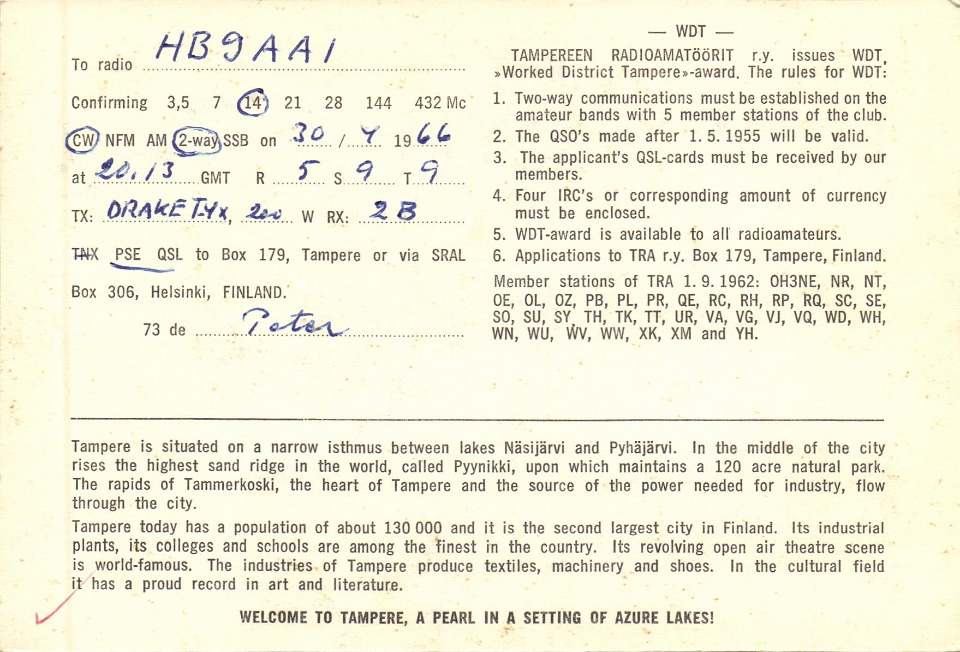 To radio HB9AA1
Confirming 3,5 7 14 21 28 144 432 Mc
CW NFM AM 2-way SSB on 30 / 4 1966
at 20.13 GMT R 5 S 9 T 9
TX: DRAKE T4x, 200 W RX: 2B
TNX PSE QSL to Box 179, Tampere or via SRAL
Box 306, Helsinki, FINLAND.
73 de Peter
— WDT —
TAMPEREEN RADIOAMATÖÖRIT r.y. issues WDT,
»Worked District Tampere»-award. The rules for WDT:
1. Two-way communications must be established on the
amateur bands with 5 member stations of the club.
2. The QSO's made after 1. 5. 1955 will be valid.
3. The applicant's QSL-cards must be received by our
members.
4. Four IRC's or corresponding amount of currency
must be enclosed.
5. WDT-award is available to all radioamateurs.
6. Applications to TRA r.y. Box 179, Tampere, Finland.
Member stations of TRA 1. 9. 1962: OH3NE, NR, NT,
OE, OL, OZ, PB, PL, PR, QE, RC, RH, RP, RQ, SC, SE,
SO, SU, SY, TH, TK, TT, UR, VA, VG, VJ, VQ, WD, WH,
WN, WU, WV, WW, XK, XM and YH.
Tampere is situated on a narrow isthmus between lakes Näsijärvi and Pyhäjärvi. In the middle of the city
rises the highest sand ridge in the world, called Pyynikki, upon which maintains a 120 acre natural park.
The rapids of Tammerkoski, the heart of Tampere and the source of the power needed for industry, flow
through the city.
Tampere today has a population of about 130 000 and it is the second largest city in Finland. Its industrial
plants, its colleges and schools are among the finest in the country. Its revolving open air theatre scene
is world-famous. The industries of Tampere produce textiles, machinery and shoes. In the cultural field
it has a proud record in art and literature.
WELCOME TO TAMPERE, A PEARL IN A SETTING OF AZURE LAKES!